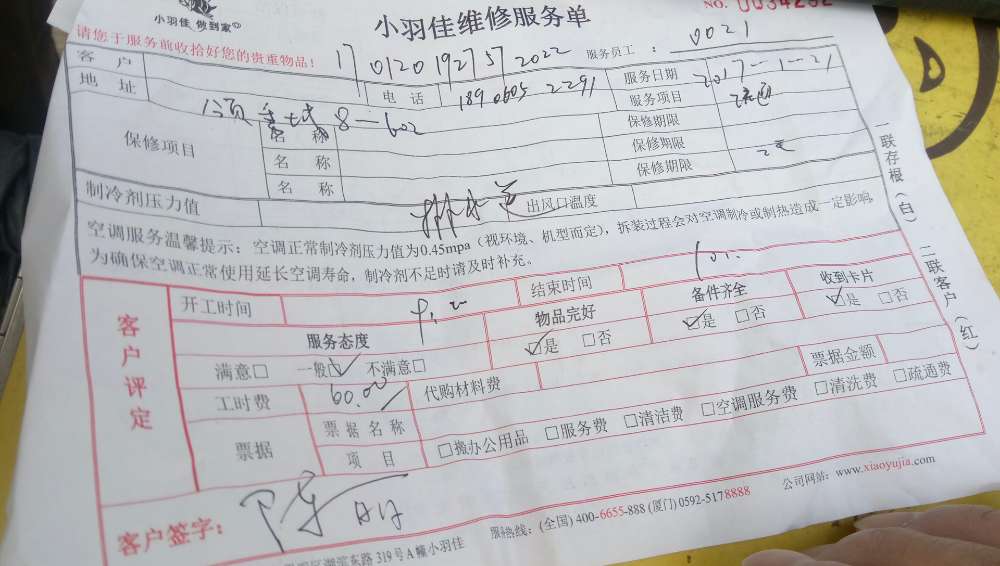 小羽佳 做到家
小羽佳维修服务单
NO. 0034252
请您于服务前收拾好您的贵重物品!
服务员工: 0021
客户 1701201927572022
服务日期 2017-1-21
地址
电话 18906052291
服务项目 疏通
8-602
保修项目
名称
保修期限
名称
保修期限
名称
保修期限
制冷剂压力值
排水管
出风口温度
空调服务温馨提示:空调正常制冷剂压力值为0.45mpa(视环境、机型而定),拆装过程会对空调制冷或制热造成一定影响。
为确保空调正常使用延长空调寿命,制冷剂不足时请及时补充。
一联存根(白) 二联客户(红)
客户评定
开工时间
结束时间
服务态度
物品完好
备件齐全
收到卡片
满意□ 一般☑ 不满意□
☑是 □否
☑是 □否
☑是 □否
工时费 60.00
代购材料费
票据金额
票据
票据名称
项目
□搬办公用品 □服务费 □清洁费 □空调服务费 □清洗费 □疏通费
客户签字:
服务热线:(全国)400-6655-888 (厦门)0592-5178888
公司网站:www.xiaoyujia.com
明区湖滨东路319号A幢小羽佳